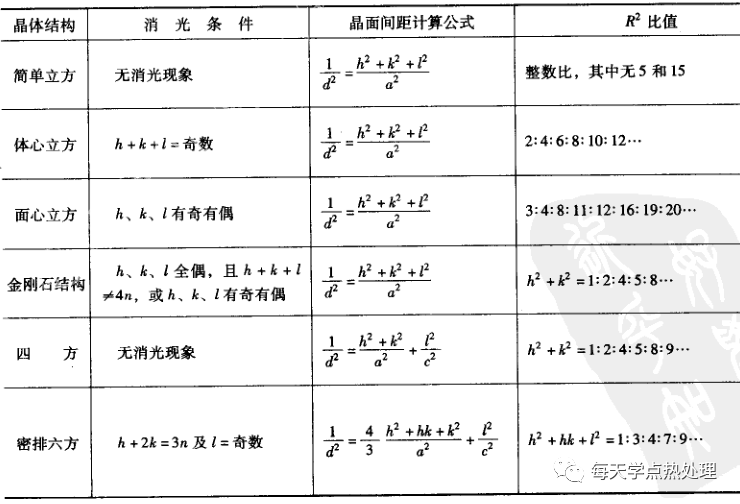 晶体结构 消光条件 晶面间距计算公式 R² 比值
简单立方 无消光现象 1/d² = (h² + k² + l²)/a² 整数比，其中无 5 和 15
体心立方 h + k + l = 奇数 1/d² = (h² + k² + l²)/a² 2∶4∶6∶8∶10∶12…
面心立方 h、k、l 有奇有偶 1/d² = (h² + k² + l²)/a² 3∶4∶8∶11∶12∶16∶19∶20…
金刚石结构 h、k、l 全偶，且 h + k + l
≠4n，或 h、k、l 有奇有偶 1/d² = (h² + k² + l²)/a² h² + k² = 1∶2∶4∶5∶8…
四方 无消光现象 1/d² = (h² + k²)/a² + l²/c² h² + k² = 1∶2∶4∶5∶8∶9…
密排六方 h + 2k = 3n 及 l = 奇数 1/d² = 4/3 (h² + hk + k²)/a² + l²/c² h² + hk + l² = 1∶3∶4∶7∶9…
每天学点热处理